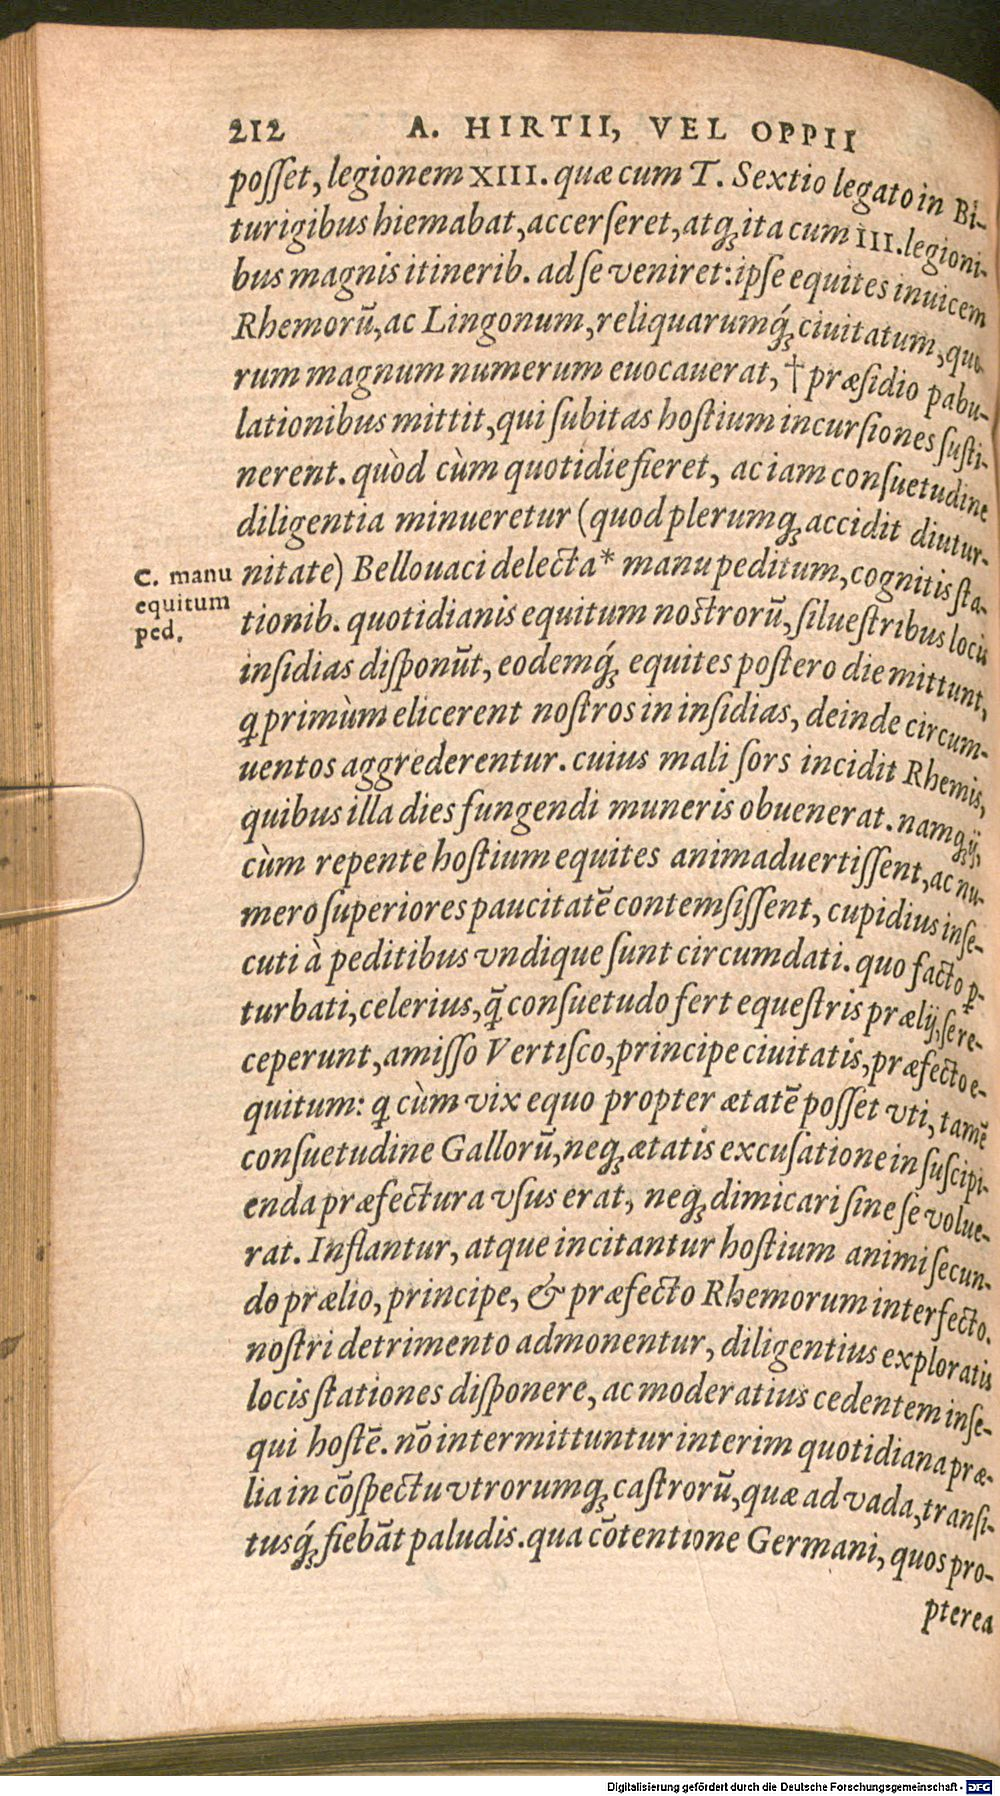 212 A. HIRTII, VEL OPPII
poſſet, legionem XIII. quæ cum T. Sextio legato in Bi-
turigibus hiemabat, accerſeret, atq́ ita cum III. legioni-
bus magnis itinerib. ad ſe veniret: ipſe equites inuicem
Rhemorũ, ac Lingonum, reliquarumq́; ciuitatum, quo-
rum magnum numerum euocauerat, † præſidio pabu-
lationibus mittit, qui ſubitas hoſtium incurſiones ſuſti-
nerent. quòd cùm quotidie fieret, ac iam conſuetudine
diligentia minueretur (quod plerumq; accidit diutur-
nitate) Bellouaci delecta* manu peditum, cognitis ſta-
C. manu
equitum
ped.
tionib. quotidianis equitum noſtrorũ, ſilueſtribus locis
inſidias diſponũt, eodemq́; equites poſtero die mittunt,
ꝗ primùm elicerent noſtros in inſidias, deinde circum-
uentos aggrederentur. cuius mali ſors incidit Rhemis,
quibus illa dies fungendi muneris obuenerat. namq; ij,
cùm repente hoſtium equites animaduertiſſent, ac nu-
mero ſuperiores paucitatẽ contemſiſſent, cupidius inſe-
cuti à peditibus vndique ſunt circumdati. quo facto ꝑ-
turbati, celerius, q̃ conſuetudo fert equeſtris prælij, ſe re-
ceperunt, amiſſo Vertiſco, principe ciuitatis, præfecto e-
quitum: ꝗ cùm vix equo propter ætatẽ poſſet vti, tamẽ
conſuetudine Gallorũ, neq; ætatis excuſatione in ſuſcipi-
enda præfectura vſus erat, neq; dimicari ſine ſe volue-
rat. Inflantur, atque incitantur hoſtium animi ſecun-
do prælio, principe, & præfecto Rhemorum interfecto.
noſtri detrimento admonentur, diligentius exploratis
locis ſtationes diſponere, ac moderatius cedentem inſe-
qui hoſtẽ. nõ intermittuntur interim quotidiana præ-
lia in cõſpectu vtrorumq; caſtrorũ, quæ ad vada, tranſi-
tusq́; fiebãt paludis. qua cõtentione Germani, quos pro-
pterea
Digitalisierung gefördert durch die Deutsche Forschungsgemeinschaft - DFG